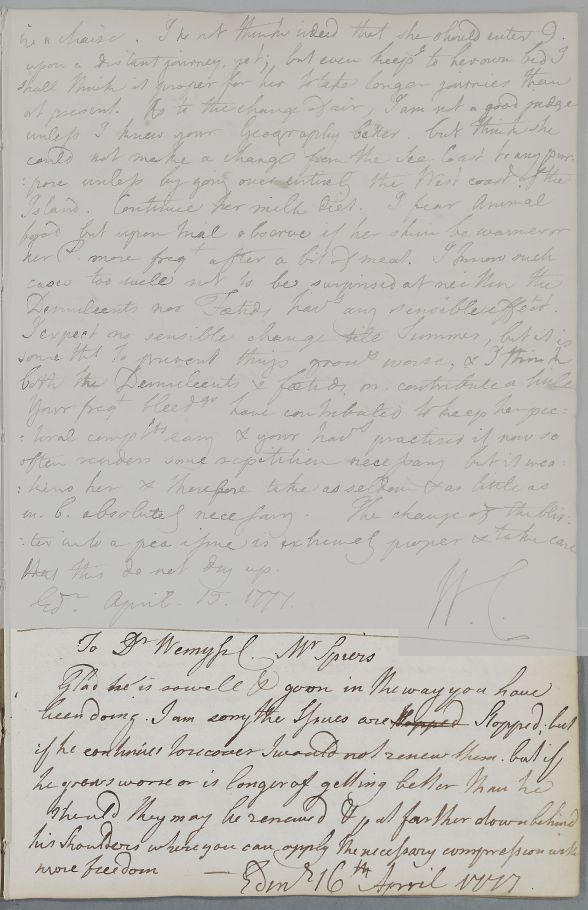 in a chaise. I do not think indeed that she should enter
upon a distant journey yet; but even keepg to her own bed I
shall think it proper for her to take longer journies than
at present. As to the change of air, I am not a good judge
unless I knew your Geography better. but think she
could not make a change from the Sea Coast to any pur-
:pose unless by going over entirely the West coast of the
Island. Continue her milk diet. I fear Animal
food but upon trial observe if her skin be warmer or
her P. more freqt after a bit of meal. I know such
cases too well not to be surprised at neither the
Demulcents nor Fœtids havg any sensible effect.
I expect no sensible change till Summer, but it is
somethg to prevent things growg worse, & I think
both the Demulcents & fœtids, contribute a little
Your freqt bleedgs have contributed to keep her pec-
:toral compts easy & your havg practised it now so
often renders some repetition necessary but it wea-
:kens her & therefore take as seldom & as little as
absolutely necessary. The change of the blis-
:ter into a pea issue is extremely proper & take care
that this do not dry up.
Edr. April. 15. 1777. W. C.
To Dr Wemyss C. Mr Spiers
Glad he is so well & go on in the way you have
been doing. I am sorry the Issues are stopped Stopped; but
if he continues to recover I would not renew them. but if
he grows worse or is longer of getting better than he
should they may be renewed & put farther down behind
his shoulders where you can apply the necessary compression with
more freedom — Edinr 16th April 1777.